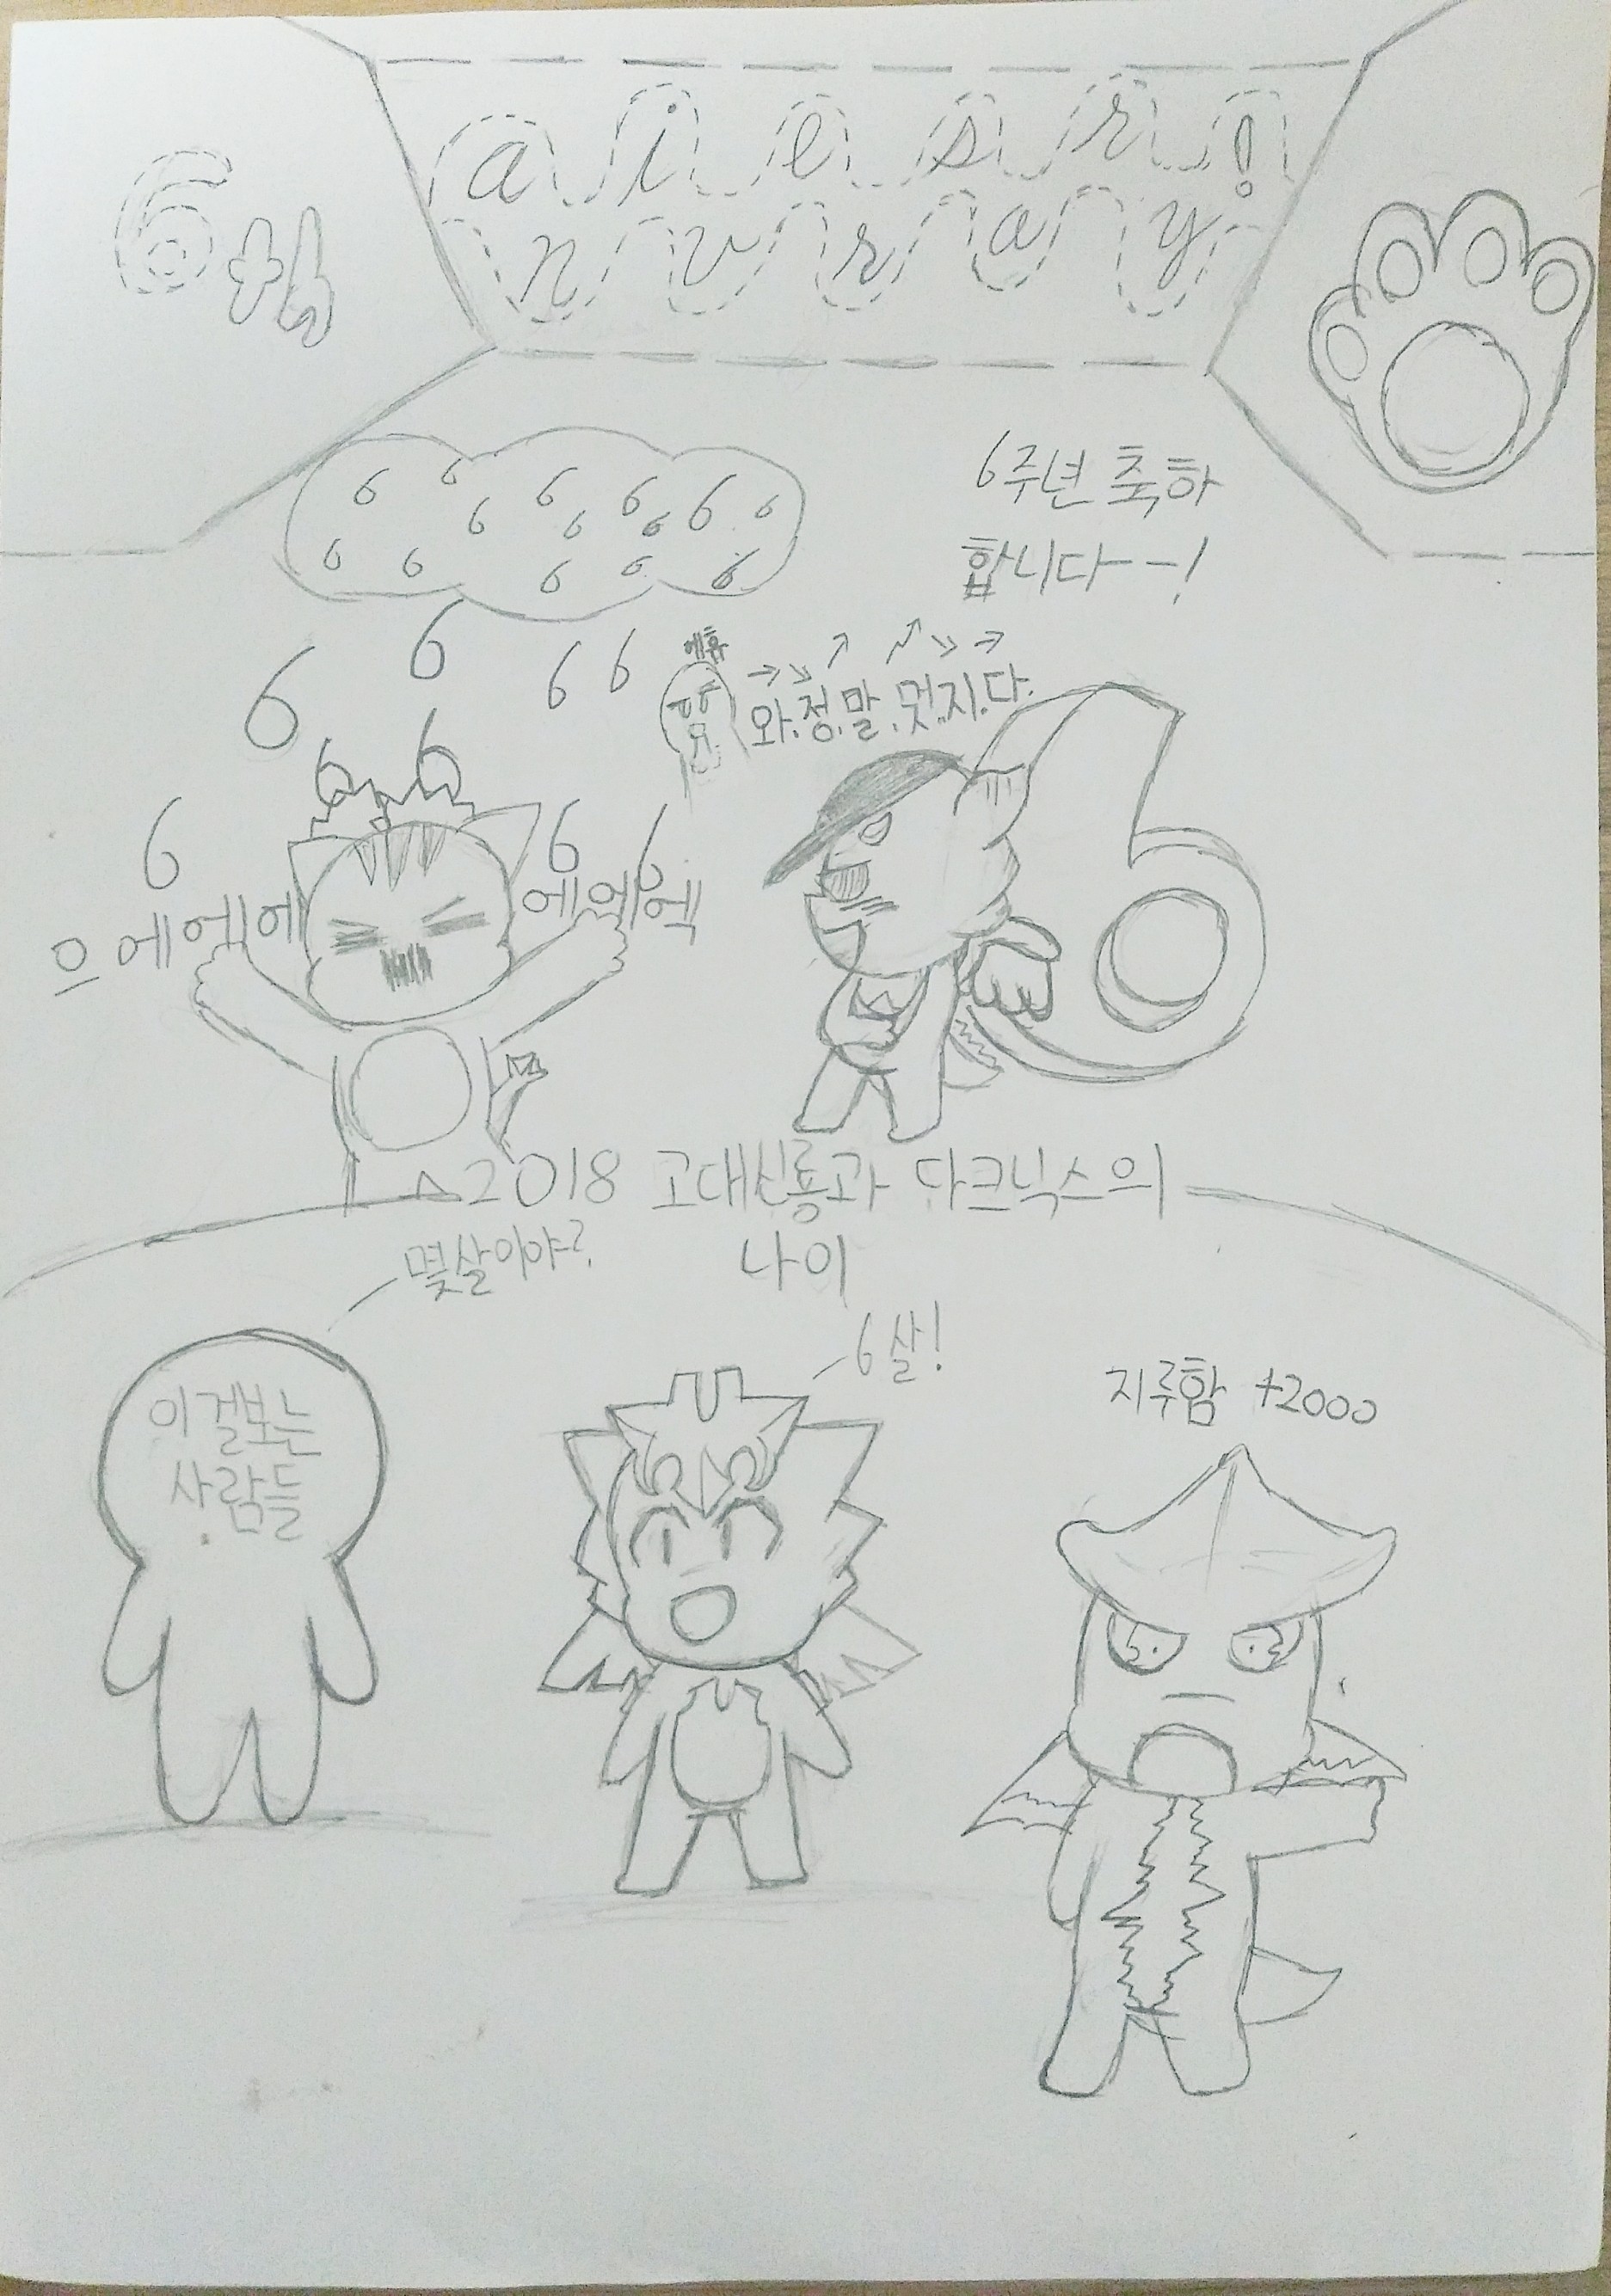 6th
a i e s r !
n v r a y
6 6 6 6 6 6 6 6 6 6 6 6 6 6
6주년 축하
합니다--!
6 6 6 6
에휴
와.정.말.멋.지.다.
6 6 6 6 6
으에에에 에에엑
6
2018 고대신룡과 다크닉스의
나이
몇살이야?
6살!
지루함 +2000
이걸보는
사람들